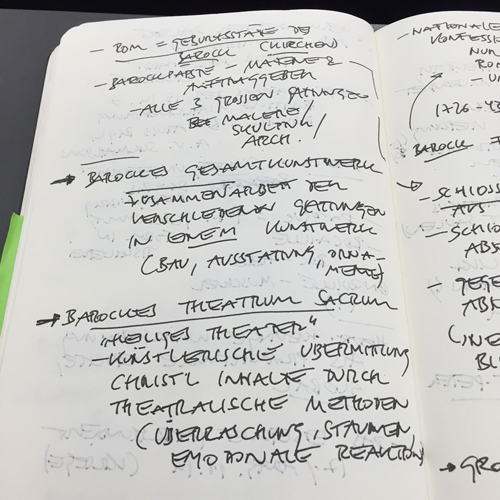 - ROM = GEBURTSSTÄTTE DES
BAROCK (KIRCHEN)
- BAROCKPÄPSTE - MÄZENE &
AUFTRAGGEBER
- ALLE 3 GROSSEN GATTUNGEN
MALEREI/
SKULPTUR/
ARCH.
→ BAROCKES GESAMTKUNSTWERK
ZUSAMMENARBEIT DER
VERSCHIEDENEN GATTUNGEN
IN EINEM KUNSTWERK
(BAU, AUSSTATTUNG, ORNA-
MENTE)
→ BAROCKES THEATRUM SACRUM
"HEILIGES THEATER"
- KÜNSTLERISCHE ÜBERMITTLUNG
CHRISTL INHALTE DURCH
THEATRALISCHE METHODEN
(ÜBERRASCHUNG, STAUNEN,
EMOTIONALE REAKTION)
- NATIONALE
KONFESSI
NUR
ROM
- U
1726-43
BAROCK
- SCHLOSS
AUS
- SCHLO
ABS
- GEGE
ABS
(INE
BL
→ GRO